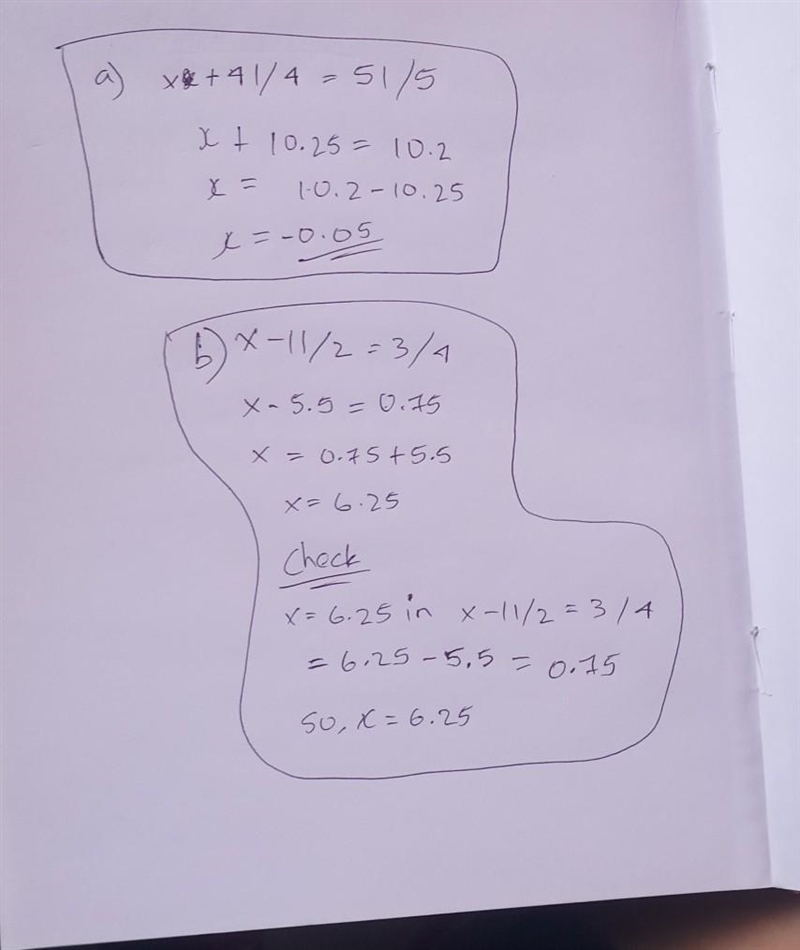 a) x + 41/4 = 51/5
x + 10.25 = 10.2
x = 10.2 - 10.25
x = -0.05
b) x - 11/2 = 3/4
x - 5.5 = 0.75
x = 0.75 + 5.5
x = 6.25
Check
x = 6.25 in x - 11/2 = 3/4
= 6.25 - 5.5 = 0.75
so, x = 6.25